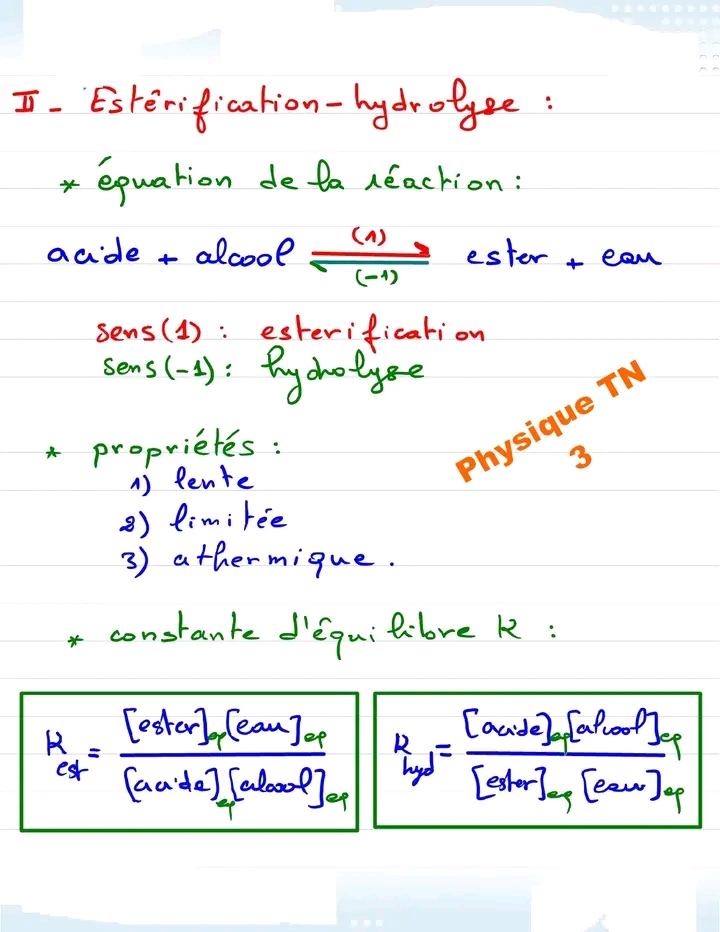 II - Estérification - hydrolyse :
* équation de la réaction :
(1)
acide + alcool ⇌ ester + eau
(-1)
sens (1) : esterification
sens (-1) : hydrolyse
Physique TN
3
* propriétés :
1) lente
2) limitée
3) athermique .
* constante d'équilibre K :
K est = [ester]eq [eau]eq / [acide]eq [alcool]eq
K hyd = [acide]eq [alcool]eq / [ester]eq [eau]eq